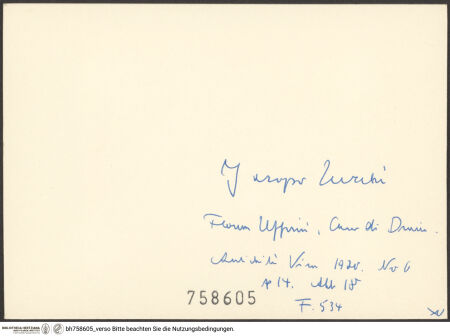 Jacopo Zucchi
Florenz Uffizien, Cas. di Disegni.
Antichità Viva 1970. No 6
p 14. Abb 18
F. 534
758605
BIBLIOTHECA HERTZIANA
bh758605_verso Bitte beachten Sie die Nutzungsbedingungen.